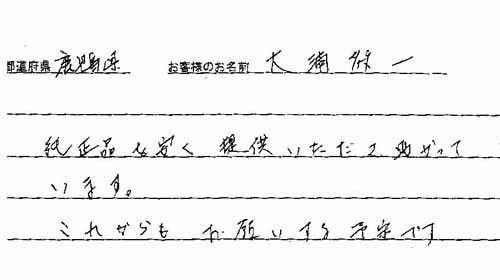 都道府県 鹿児島県 お客様のお名前 大浦 一
純正品を安く提供いただき助かって
います。
これからもお願いする予定です